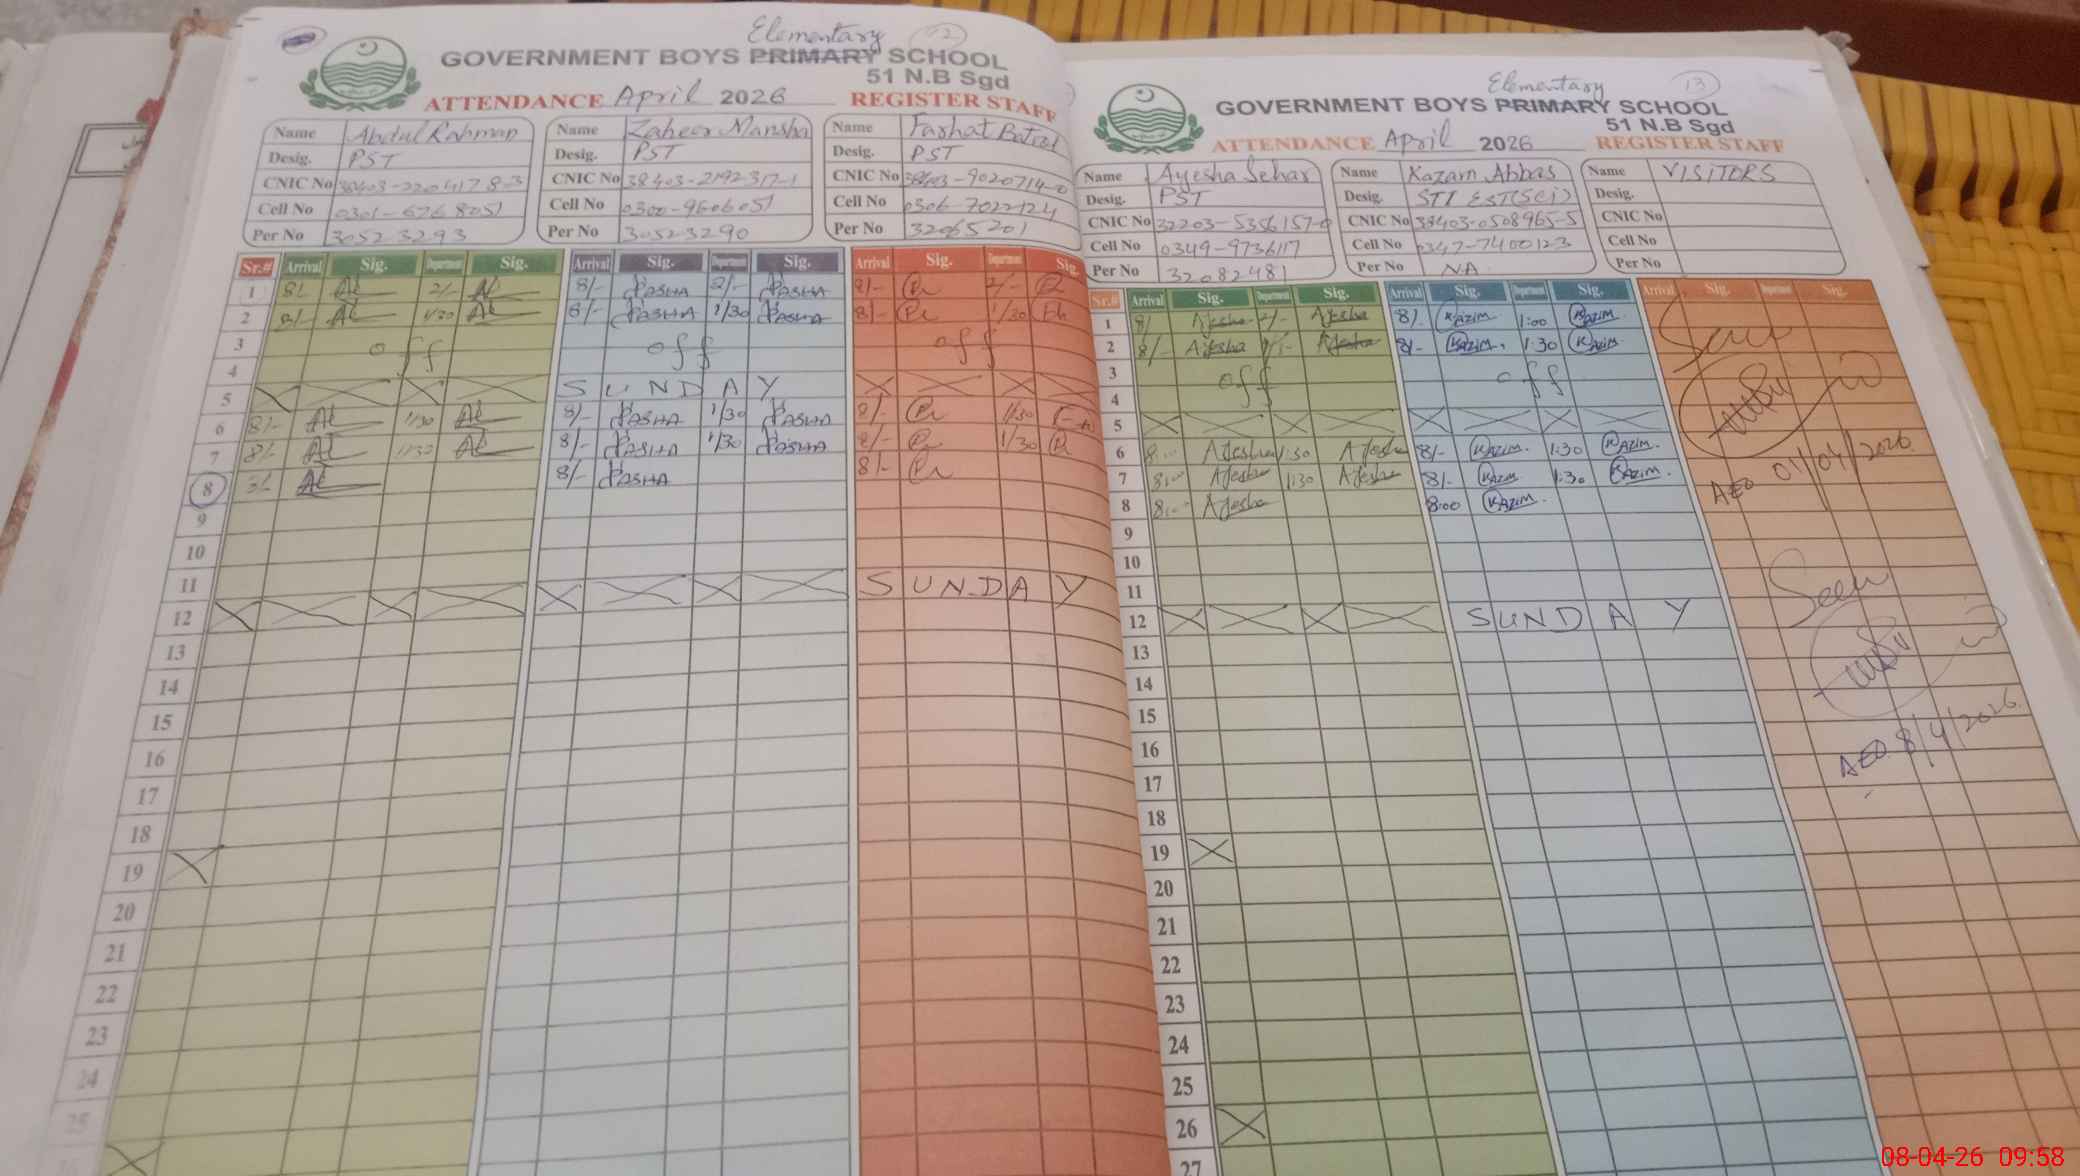 Elementary 12
GOVERNMENT BOYS PRIMARY SCHOOL
51 N.B Sgd
ATTENDANCE April 2026 REGISTER STAFF
Name Abdul Rahman
Desig. PST
CNIC No 38403-2204178-3
Cell No 0301-6768051
Per No 30523293
Name Zaheer Mansha
Desig. PST
CNIC No 38403-2192317-1
Cell No 0300-9606051
Per No 30523290
Name Farhat Batool
Desig. PST
CNIC No 38403-9020714-0
Cell No 0306-7022124
Per No 32065201
Sr.# Arrival Sig. Department Sig. Arrival Sig. Department Sig. Arrival Sig. Department Sig.
1 8/- 2/- 8/- PASHA 2/- PASHA 8/- 2/-
2 8/- 1/30 8/- PASHA 1/30 PASHA 8/- 1/30
3 off off off
4
5 SUNDAY
6 8/- 1/30 8/- PASHA 1/30 PASHA 8/- 1/30
7 8/- 1/30 8/- PASHA 1/30 PASHA 8/- 1/30
8 8/- 8/- PASHA 8/-
9
10
11 SUNDAY
12
13
14
15
16
17
18
19
20
21
22
23
24
25
26
Elementary 13
GOVERNMENT BOYS PRIMARY SCHOOL
51 N.B Sgd
ATTENDANCE April 2026 REGISTER STAFF
Name Ayesha Sehar
Desig. PST
CNIC No 32203-5356157-0
Cell No 0349-9736117
Per No 32082481
Name Kazam Abbas
Desig. STI EST(SCI)
CNIC No 38403-0508965-5
Cell No 0347-7400123
Per No NA
Name VISITORS
Desig.
CNIC No
Cell No
Per No
Sr.# Arrival Sig. Department Sig. Arrival Sig. Department Sig. Arrival Sig. Department Sig.
1 8/ Ayesha 2/- Ayesha 8/. KAZIM. 1:00 KAZIM.
2 8/- Ayesha Ayesha 8/- KAZIM. 1:30 KAZIM.
3 off off
4
5
6 8:00 Ayesha 1:30 Ayesha 8/- KAZIM. 1:30 KAZIM.
7 8:00 Ayesha 1:30 Ayesha 8/- KAZIM. 1:30 KAZIM.
8 8:00 Ayesha 8:00 KAZIM.
9
10
11
12 SUNDAY
13
14
15
16
17
18
19
20
21
22
23
24
25
26
27
Seen
AEO 01/04/2026
Seen
AEO 8/4/2026
08-04-26 09:58